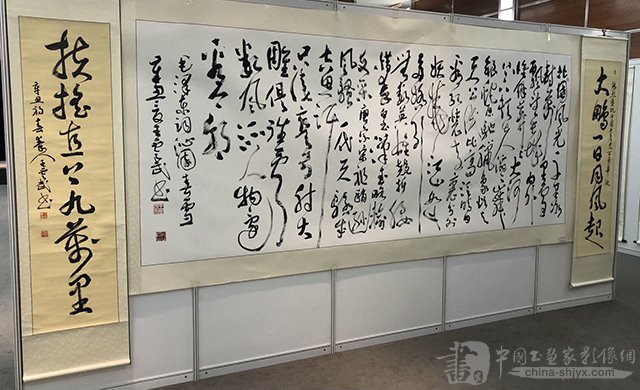 大鹏一日同风起
北国风光 千里冰
封万里雪
飘望长城内外
惟余莽莽大河
上下顿失滔滔山舞
银蛇原驰蜡象欲与
天公试比高须晴日
看红装素裹分外
妖娆 江山如此
多娇引
无数英雄竞折腰
惜秦皇汉武略输
文采唐宗宋祖稍逊
风骚一代天骄成
吉思汗
只识弯弓射大
雕俱往矣
数风流人物还
看今朝
毛泽东词沁园春雪
扶搖直上九萬里
中国书画家影像网
china-shjyx.com